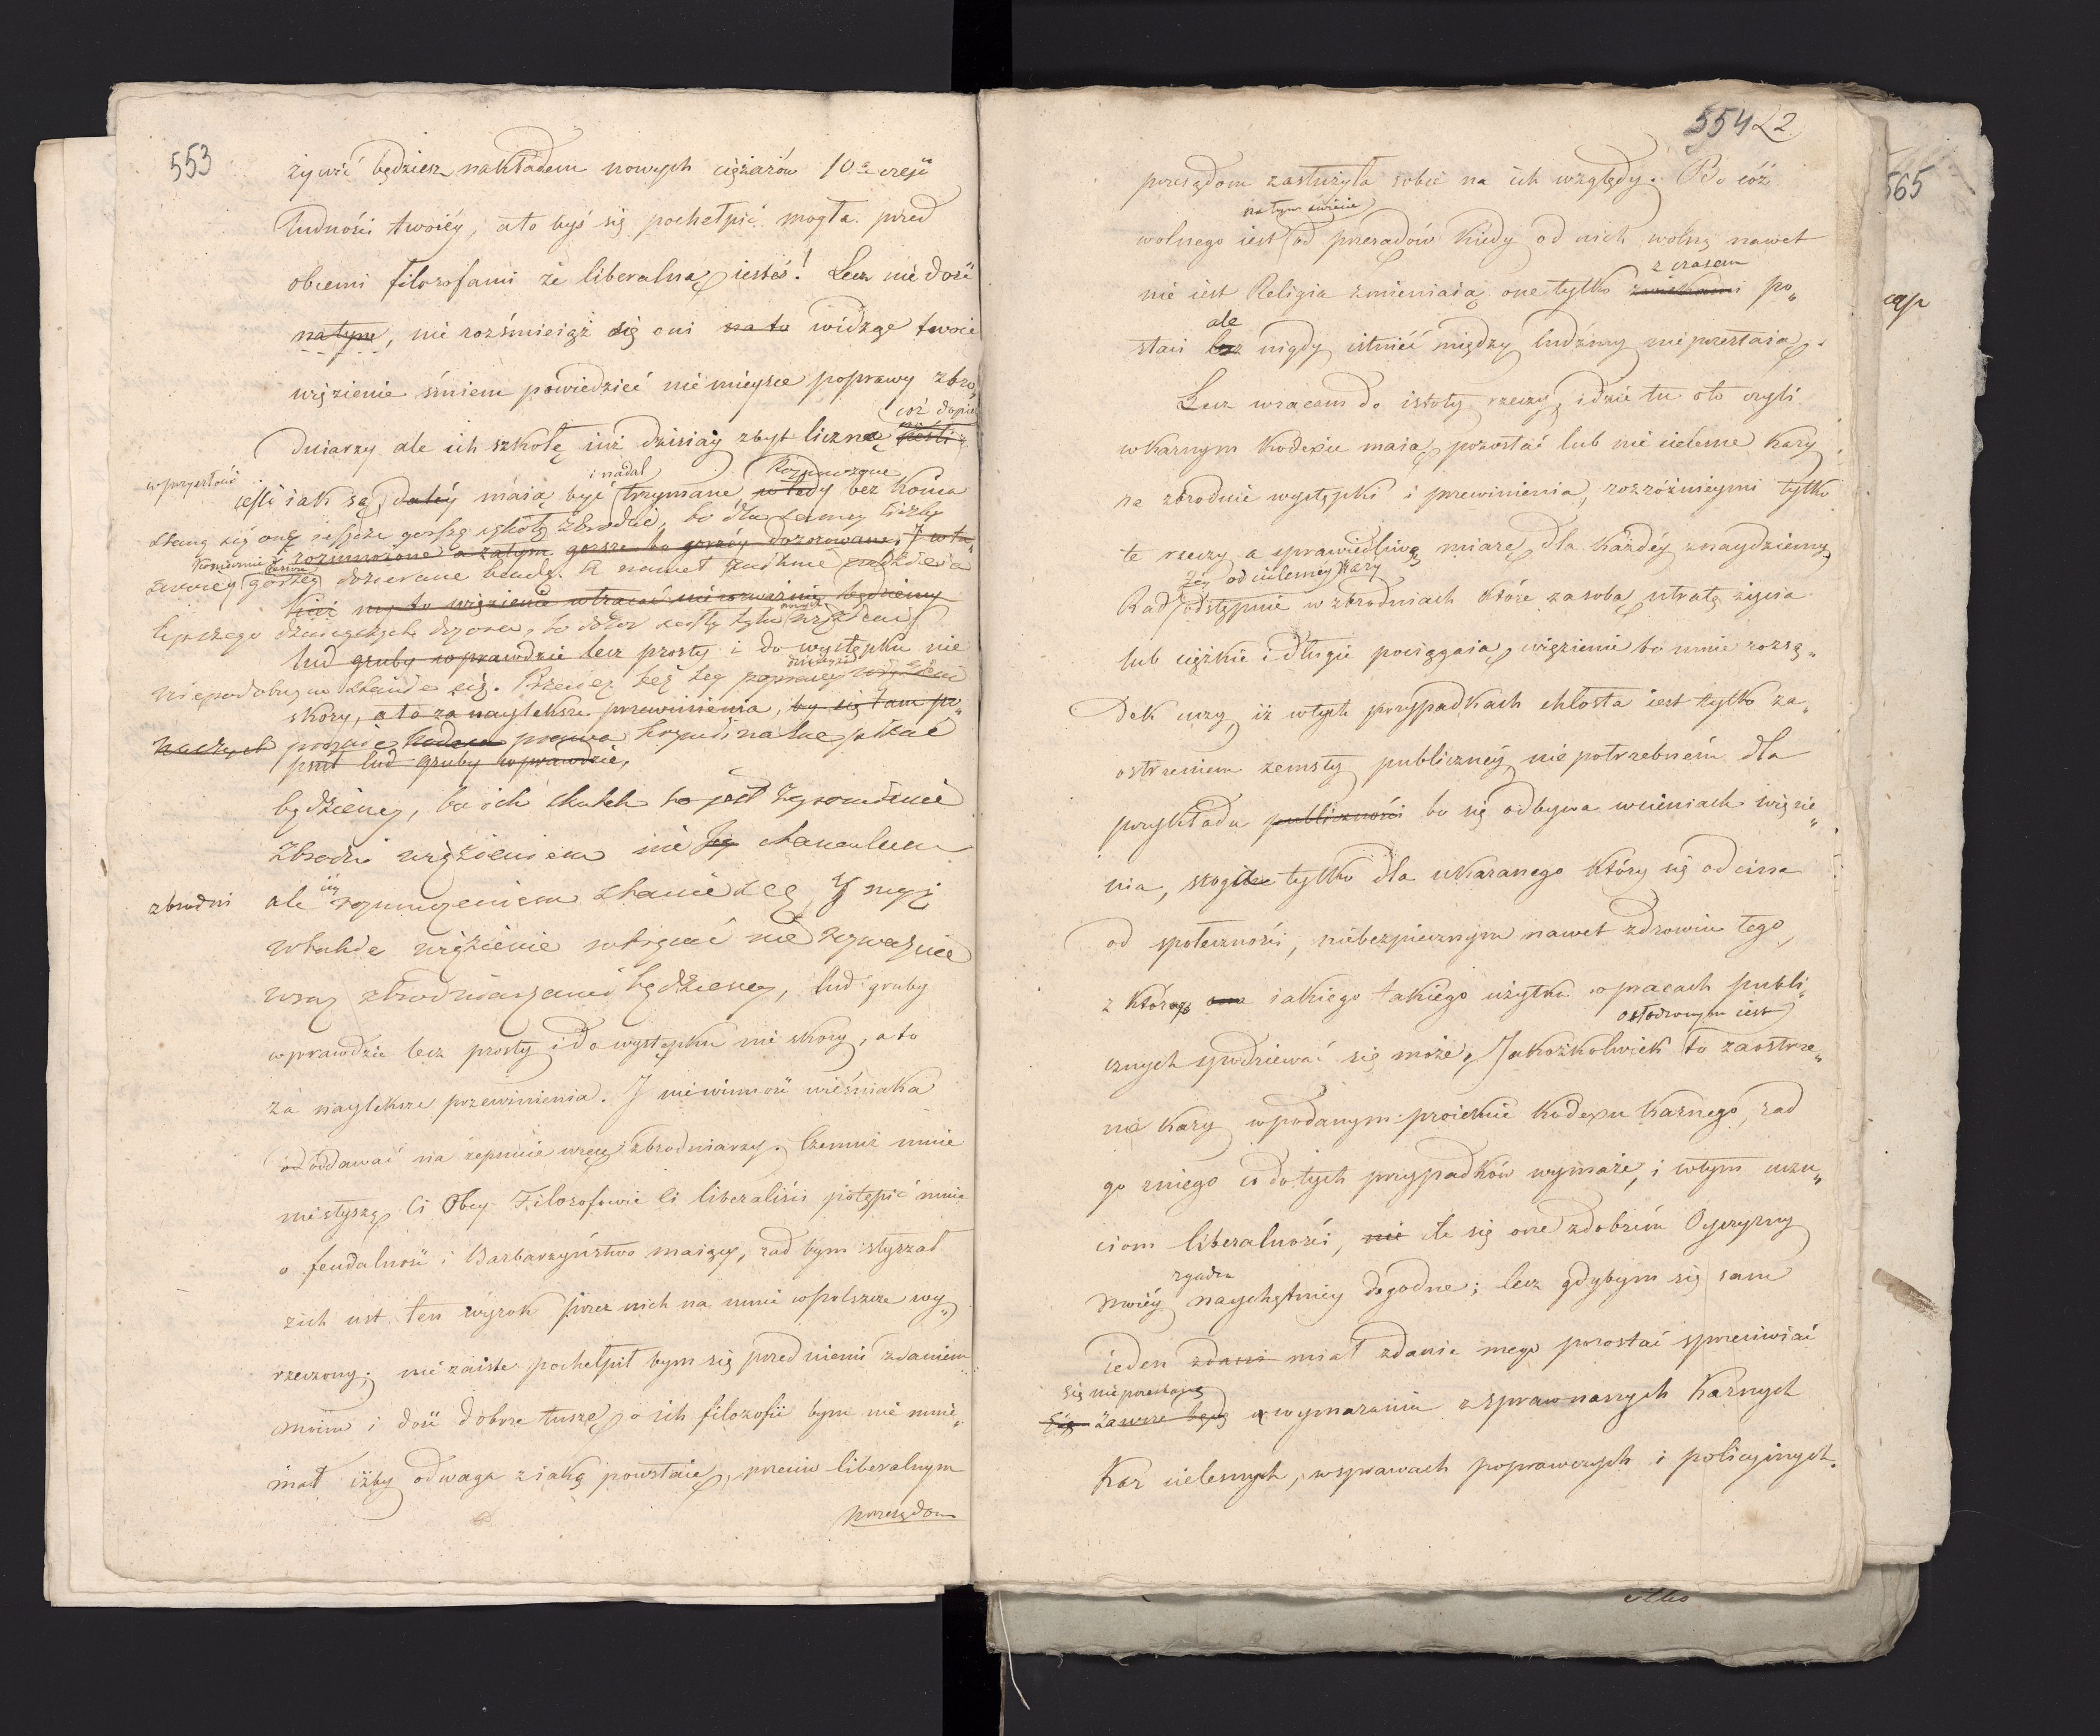 553
żywić będziesz nakładem nowych ciężarów 10ą część
ludności twoiéy, ato byś się pochełpić mogła przed
obcemi filozofami że liberalną iesteś! Lecz nie dość
na tym, nie rozśmieiąż się oni na to widząc twoie
więzienie śmiem powiedzieć nie mieysce poprawy zbro„
cóż dopie
dniarzy ale ich szkołę iuż dzisiay zbyt liczną jeśli
w przyszłość i nadal Rozmnożone
ieśli iak są daléy maią być trzymane wtedy bez końca
staną się one ieszcze gorszą szkołą zbrodni, bo dla samey liczby
rozmnożone a zatym gorsze bo gorzéy dozorowane. I wta„
gorzey dozorowane będą. A nawet
my to więzienie wtracać nierozważnie będziemy
lepszego dozoru, bo
lud gruby wprawdzie lecz prosty i do występku nie
niepodobnym stanie się.
skory, a to za nayleksze przewinienia, by się tam po„
prawa
psuł lud gruby wprawdzie,
będziemy, bo ich skutek to jest zgromadzenie
zbrodni więzieniem nie iey
zbrodni ale iey rozmnożeniem stanie się, Y myż
wtakie więzienie wtrącać nie rozważnie
wraz z zbrodniarzami będziemy, lud gruby
wprawdzie lecz prosty i do występku nie skory, a to
za nayleksze przewinienia. I niewinność wieśniaka
od oddawać na zepsucie wręce zbrodniarzy. Czemuż mnie
niesłyszą Ci Obcy Filozofowie Ci liberaliści potępić mnie
o feudalność i Barbarzyństwo maiący, rad bym słyszał
zich ust ten wyrok przez nich na mnie wpolszcze wy„
rzeczony; nie zaiste pochełpił bym się przed niemi zdaniem
moim i dość dobrze tuszę o ich filozofii bym nie mnie„
mał iżby odwaga z iaką powstaię, przeciw liberalnym
przesądom
554 22
przesądom zasłużyła sobie na ich względy. Bo cóż
na tym świecie
wolnego iest od przesadów kiedy od nich wolną nawet
z czasem
nie iest Religia zmieniaią one tylko z wiekami po„
ale
staci lecz nigdy istnieć między ludźmy nie przestaią.
Lecz wracam do istoty rzeczy, idzie tu oto czyli
w karnym Kodexie maią pozostać lub nie cielesne Kary
na zbrodnie występki i przewinienia, rozróżnieymi tylko
te rzeczy a sprawiedliwą miarę dla każdéy znaydziemy
téy od cielesnéy Kary
Rad odstąpnie w zbrodniach które zasobą utratę życia
lub ciężkie i długie pociągaią więzienie bo mnie rozsą„
dek uczy iż wtych przypadkach chłosta iest tylko za„
ostrzeniem zemsty publicznéy nie potrzebném dla
przykładu publiczności bo się odbywa wcieniach więzie„
nia, srogie tylko dla ukaranego który się od cina
od społeczności, niebezpiecznym nawet zdrowiu tego,
z którego iakiego takiego użytku w pracach publi„
osłodzonym iest
cznych spodziewać się może. Jakożkolwiek to zaostrze„
nie Kary w podanym proiekcie Kodexu Karnego, rad
go zniego co do tych przypadków wymaże, i wtym uczu„
ciom liberalności, nie ile się one zdobrém Oyczyzny
zgadza
moiéy naychętniey dogodne; lecz gdybym się sam
ieden miał zdania mego pozostać sprzeciwiać
się nie przestanę
się zawsze będę wymazaniu z spraw naszych Karnych
Kar cielesnych, w sprawach poprawczych i policyinych.
565